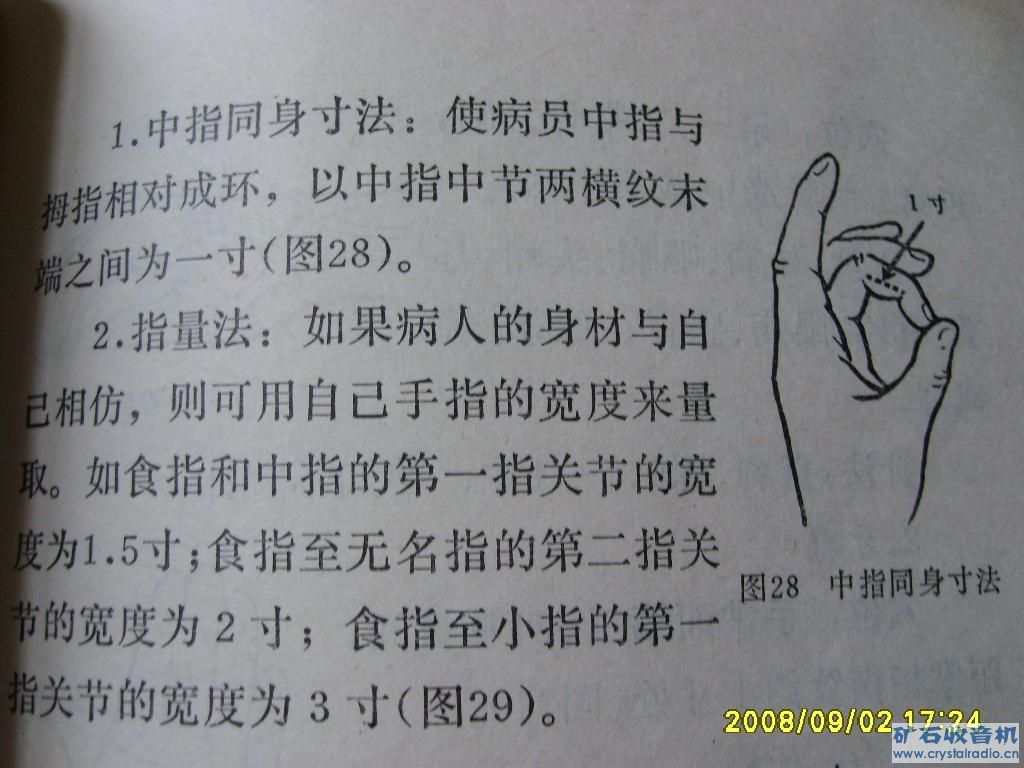 1.中指同身寸法：使病员中指与
拇指相对成环，以中指中节两横纹末
端之间为一寸(图28)。
2.指量法：如果病人的身材与自
己相仿，则可用自己手指的宽度来量
取。如食指和中指的第一指关节的宽
度为1.5寸；食指至无名指的第二指关
节的宽度为2寸；食指至小指的第一
指关节的宽度为3寸(图29)。
1寸
图28 中指同身寸法
2008/09/02 17:24
矿石收音机
www.crystalradio.cn